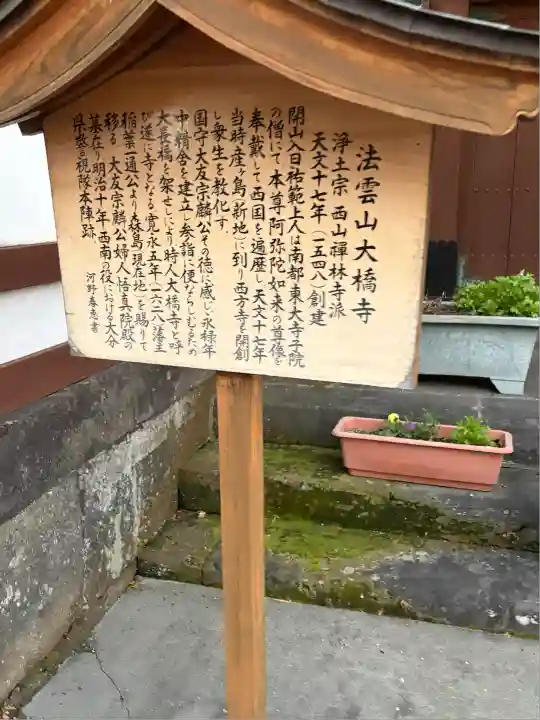 法雲山大橋寺
浄土宗 西山禪林寺派
天文十七年（一五四八）創建
開山入日祐範上人は南都東大寺子院
の僧にて、本尊阿弥陀如来の尊像を
奉戴して西国を遍歴し天文十七年
当時産ヶ島（新地）に到り西方寺を開創
し衆生を教化す。
国守大友宗麟公その徳に感じ永禄年
中精舎を建立し参詣に便ならしむるため
大長橋を架せしにより時人大橋寺と呼
び遂に寺となる。寛永五年（一六二八）藩主
稲葉一通公より森島（現在地）を賜りて
移る 大友宗麟公婦人悟真院殿の
墓在り明治十年西南の役における大分
県警視隊本陣跡。
河野春恵書